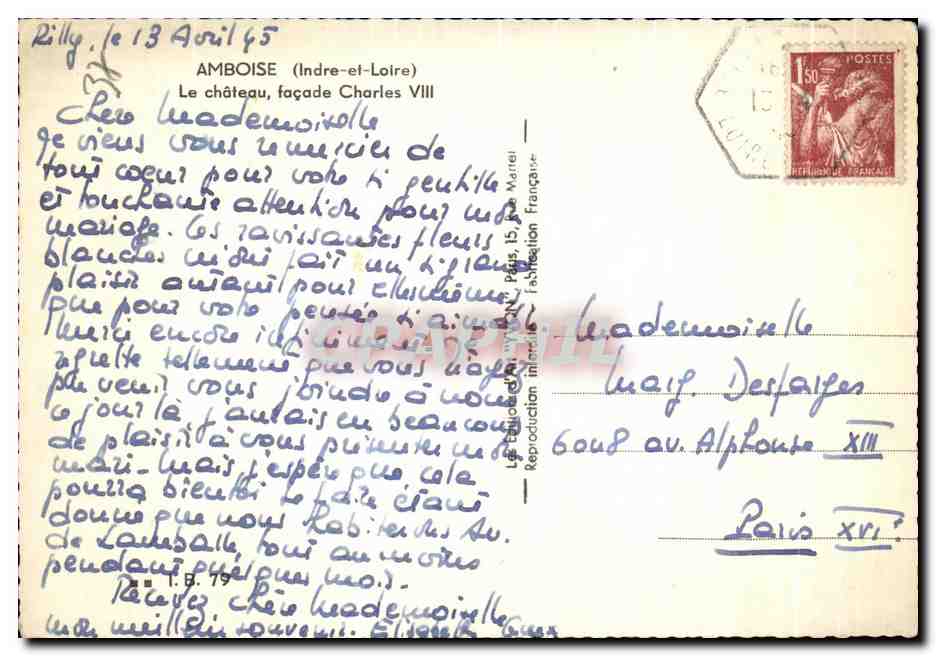 Rilly, le 13 Avril 45
AMBOISE (Indre-et-Loire)
Le château, façade Charles VIII
Chère Mademoiselle
Je viens vous remercier de
tout cœur pour votre si gentille
et touchante attention pour mon
mariage. Ces ravissantes fleurs
blanches m'ont fait un si grand
plaisir autant pour elles mêmes
que pour votre pensée si aimable
Merci encore infiniment. Je
regrette tellement que vous n'ayez
pu venir vous joindre à nous
ce jour là, j'aurais eu beaucoup
de plaisir à vous présenter mon
mari - mais j'espère que cela
pourra bientôt se faire étant
donné que nous habiterons Av.
de Lamballe, tout au moins
pendant quelques mois.
I. B. 79
Recevez chère Mademoiselle
mon meilleur souvenir. Elisabeth
Les Editions d'Art "YVON", Paris, 15, Rue Martel
Reproduction interdite - Fabrication Française
1F50
POSTES
REPUBLIQUE FRANÇAISE
Mademoiselle
Marg. Desfarges
6 av. Alphonse XIII
Paris XVIe
CPAPHIL